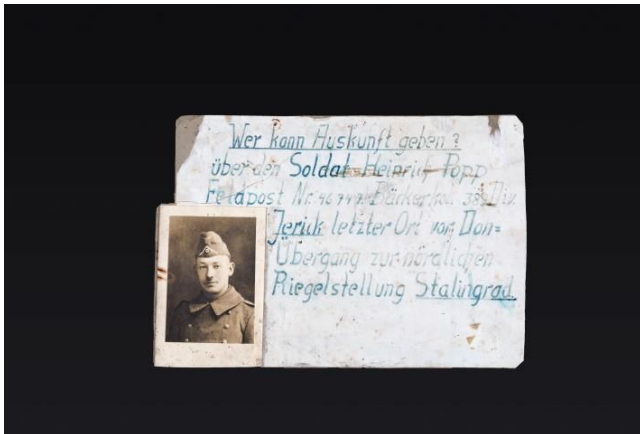 Wer kann Auskunft geben?
über den Soldat Heinrich Popp
Feldpost Nr. Bäckerko. 389 Div.
letzter Ort vor Don=
Übergang zur nördlichen
Riegelstellung Stalingrad.